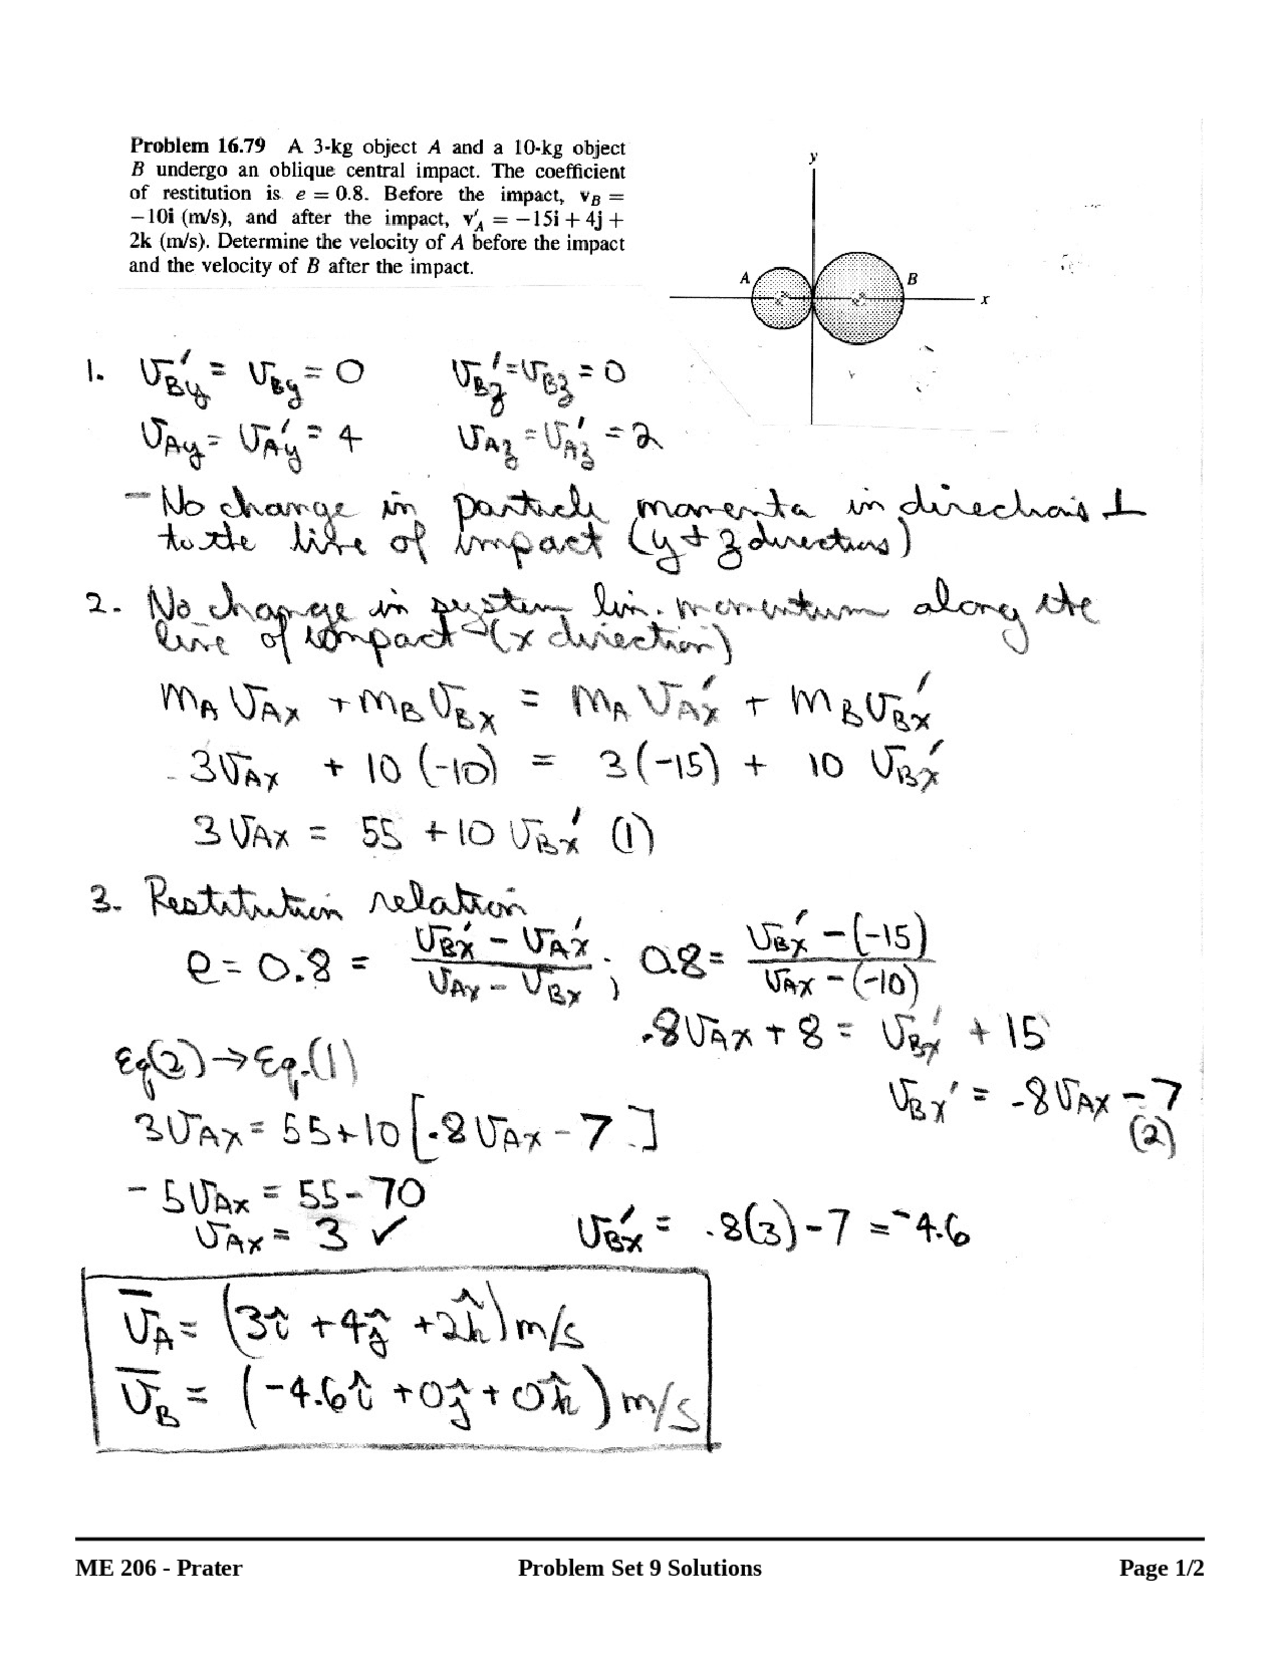 Problem 16.79 A 3-kg object A and a 10-kg object
B undergo an oblique central impact. The coefficient
of restitution is e = 0.8. Before the impact, v_B =
−10i (m/s), and after the impact, v′_A = −15i + 4j +
2k (m/s). Determine the velocity of A before the impact
and the velocity of B after the impact.
y
A
B
x
1. v_By′ = v_By = 0   v_Bz′ = v_Bz = 0
v_Ay = v_Ay′ = 4   v_Az = v_Az′ = 2
- No change in particle momenta in directions ⊥
to the line of impact (y + z directions)
2. No change in system lin. momentum along the
line of impact (x direction)
m_A v_Ax + m_B v_Bx = m_A v_Ax′ + m_B v_Bx′
3v_Ax + 10(-10) = 3(-15) + 10 v_Bx′
3v_Ax = 55 + 10 v_Bx′ (1)
3. Restitution relation
e = 0.8 = (v_Bx′ - v_Ax′)/(v_Ax - v_Bx) ; 0.8 = (v_Bx′ - (-15))/(v_Ax - (-10))
.8v_Ax + 8 = v_Bx′ + 15
v_Bx′ = .8v_Ax - 7
(2)
Eq(2) → Eq.(1)
3v_Ax = 55 + 10[.8v_Ax - 7]
-5v_Ax = 55 - 70
v_Ax = 3 ✓   v_Bx′ = .8(3) - 7 = -4.6
v̄_A = (3î + 4ĵ + 2k̂) m/s
v̄_B = (-4.6î + 0ĵ + 0k̂) m/s
ME 206 - Prater   Problem Set 9 Solutions   Page 1/2